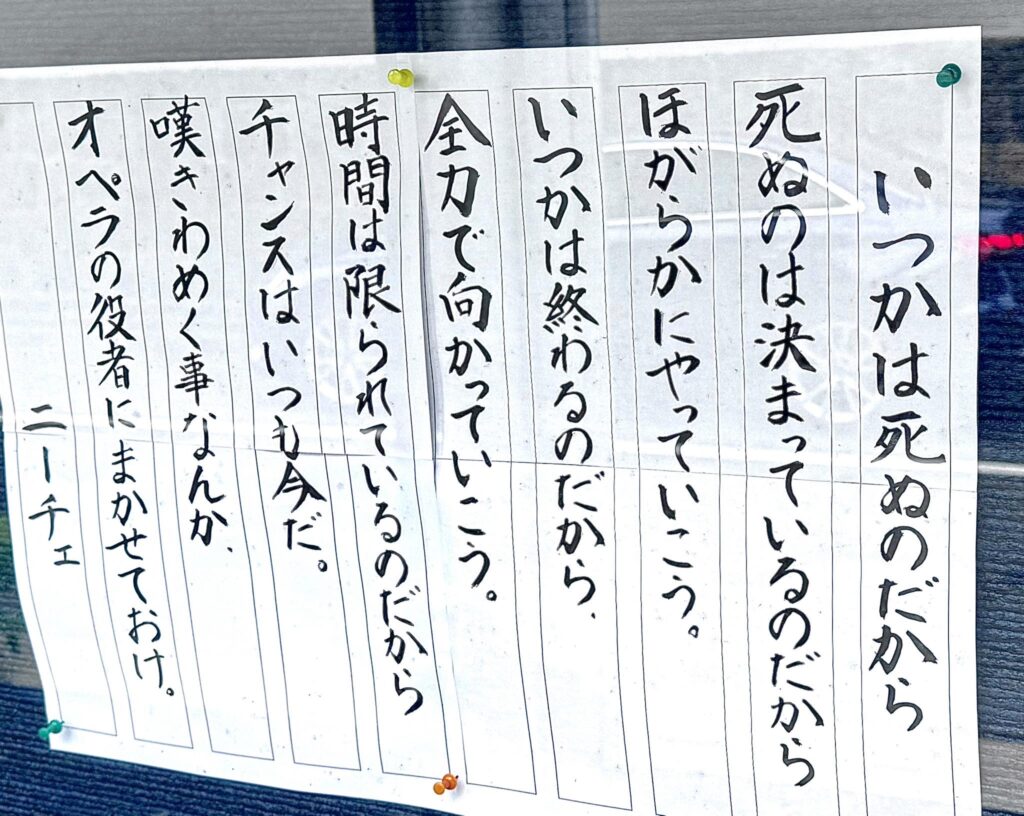 いつかは死ぬのだから
死ぬのは決まっているのだから
ほがらかにやっていこう。
いつかは終わるのだから、
全力で向かっていこう。
時間は限られているのだから
チャンスはいつも今だ。
嘆きわめく事なんか、
オペラの役者にまかせておけ。
ニーチェ